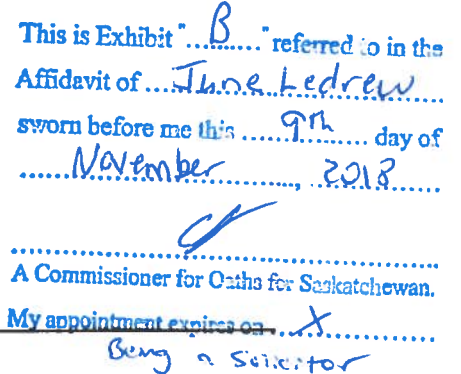 This is Exhibit "....B...." referred to in the
Affidavit of ....June Ledrew....
sworn before me this ....9th.... day of
....November...., ....2018....
A Commissioner for Oaths for Saskatchewan.
My appointment expires on ....X....
Being a Solicitor